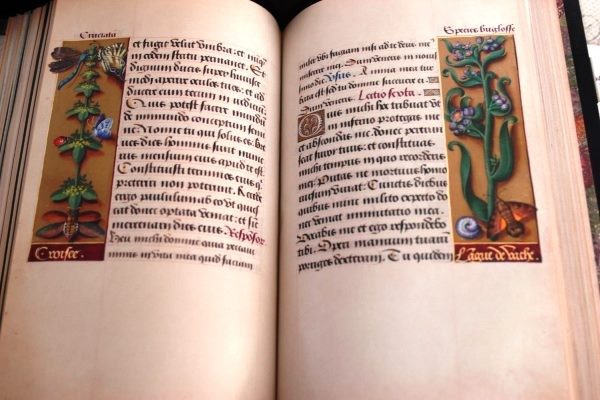 Cruciata
et fugit velut umbra: et nūq̄
in eodem statu permanet. Et
dignum ducis super huiusce
modi aperire oculos tuos: et ad
ducere eum tecum in iudicium
Quis potest facere mundum
de immundo conceptum semine
Nonne tu qui solus es. Bre
ues dies hominis sunt: nume
rus mensium eius apud te est.
Constituisti terminos eius q̄
preteriri non poterunt. Recede
ergo paululum ab eo: ut quies
cat donec optata veniat: et sic
mercenarii dies eius. Respōsor.
Heu michi domine quia peccaui
nimis in vita mea quid faciam
Croisee.
Species buglosse
miser ubi fugiam nisi ad te deus me?
miserere mei. Dum veneris in nouis
simo die. Versus. Anima mea tur
bata est sed tu domine succurre ei.
Dum veneris. Lectio sexta.
Quis michi hoc tribuat ut
in inferno protegas me:
et abscondas me donec pertran
seat furor tuus: et constituas
michi tempus in quo recorderis
mei. Putas ne mortuus homo
rursum viuat. Cunctis diebus
quibus nunc milito expecto do
nec veniat immutatio mea.
Vocabis me et ego respondebo
tibi. Operi manuum tuarum
porriges dexteram. Tu quidem
Lāgue de vache.